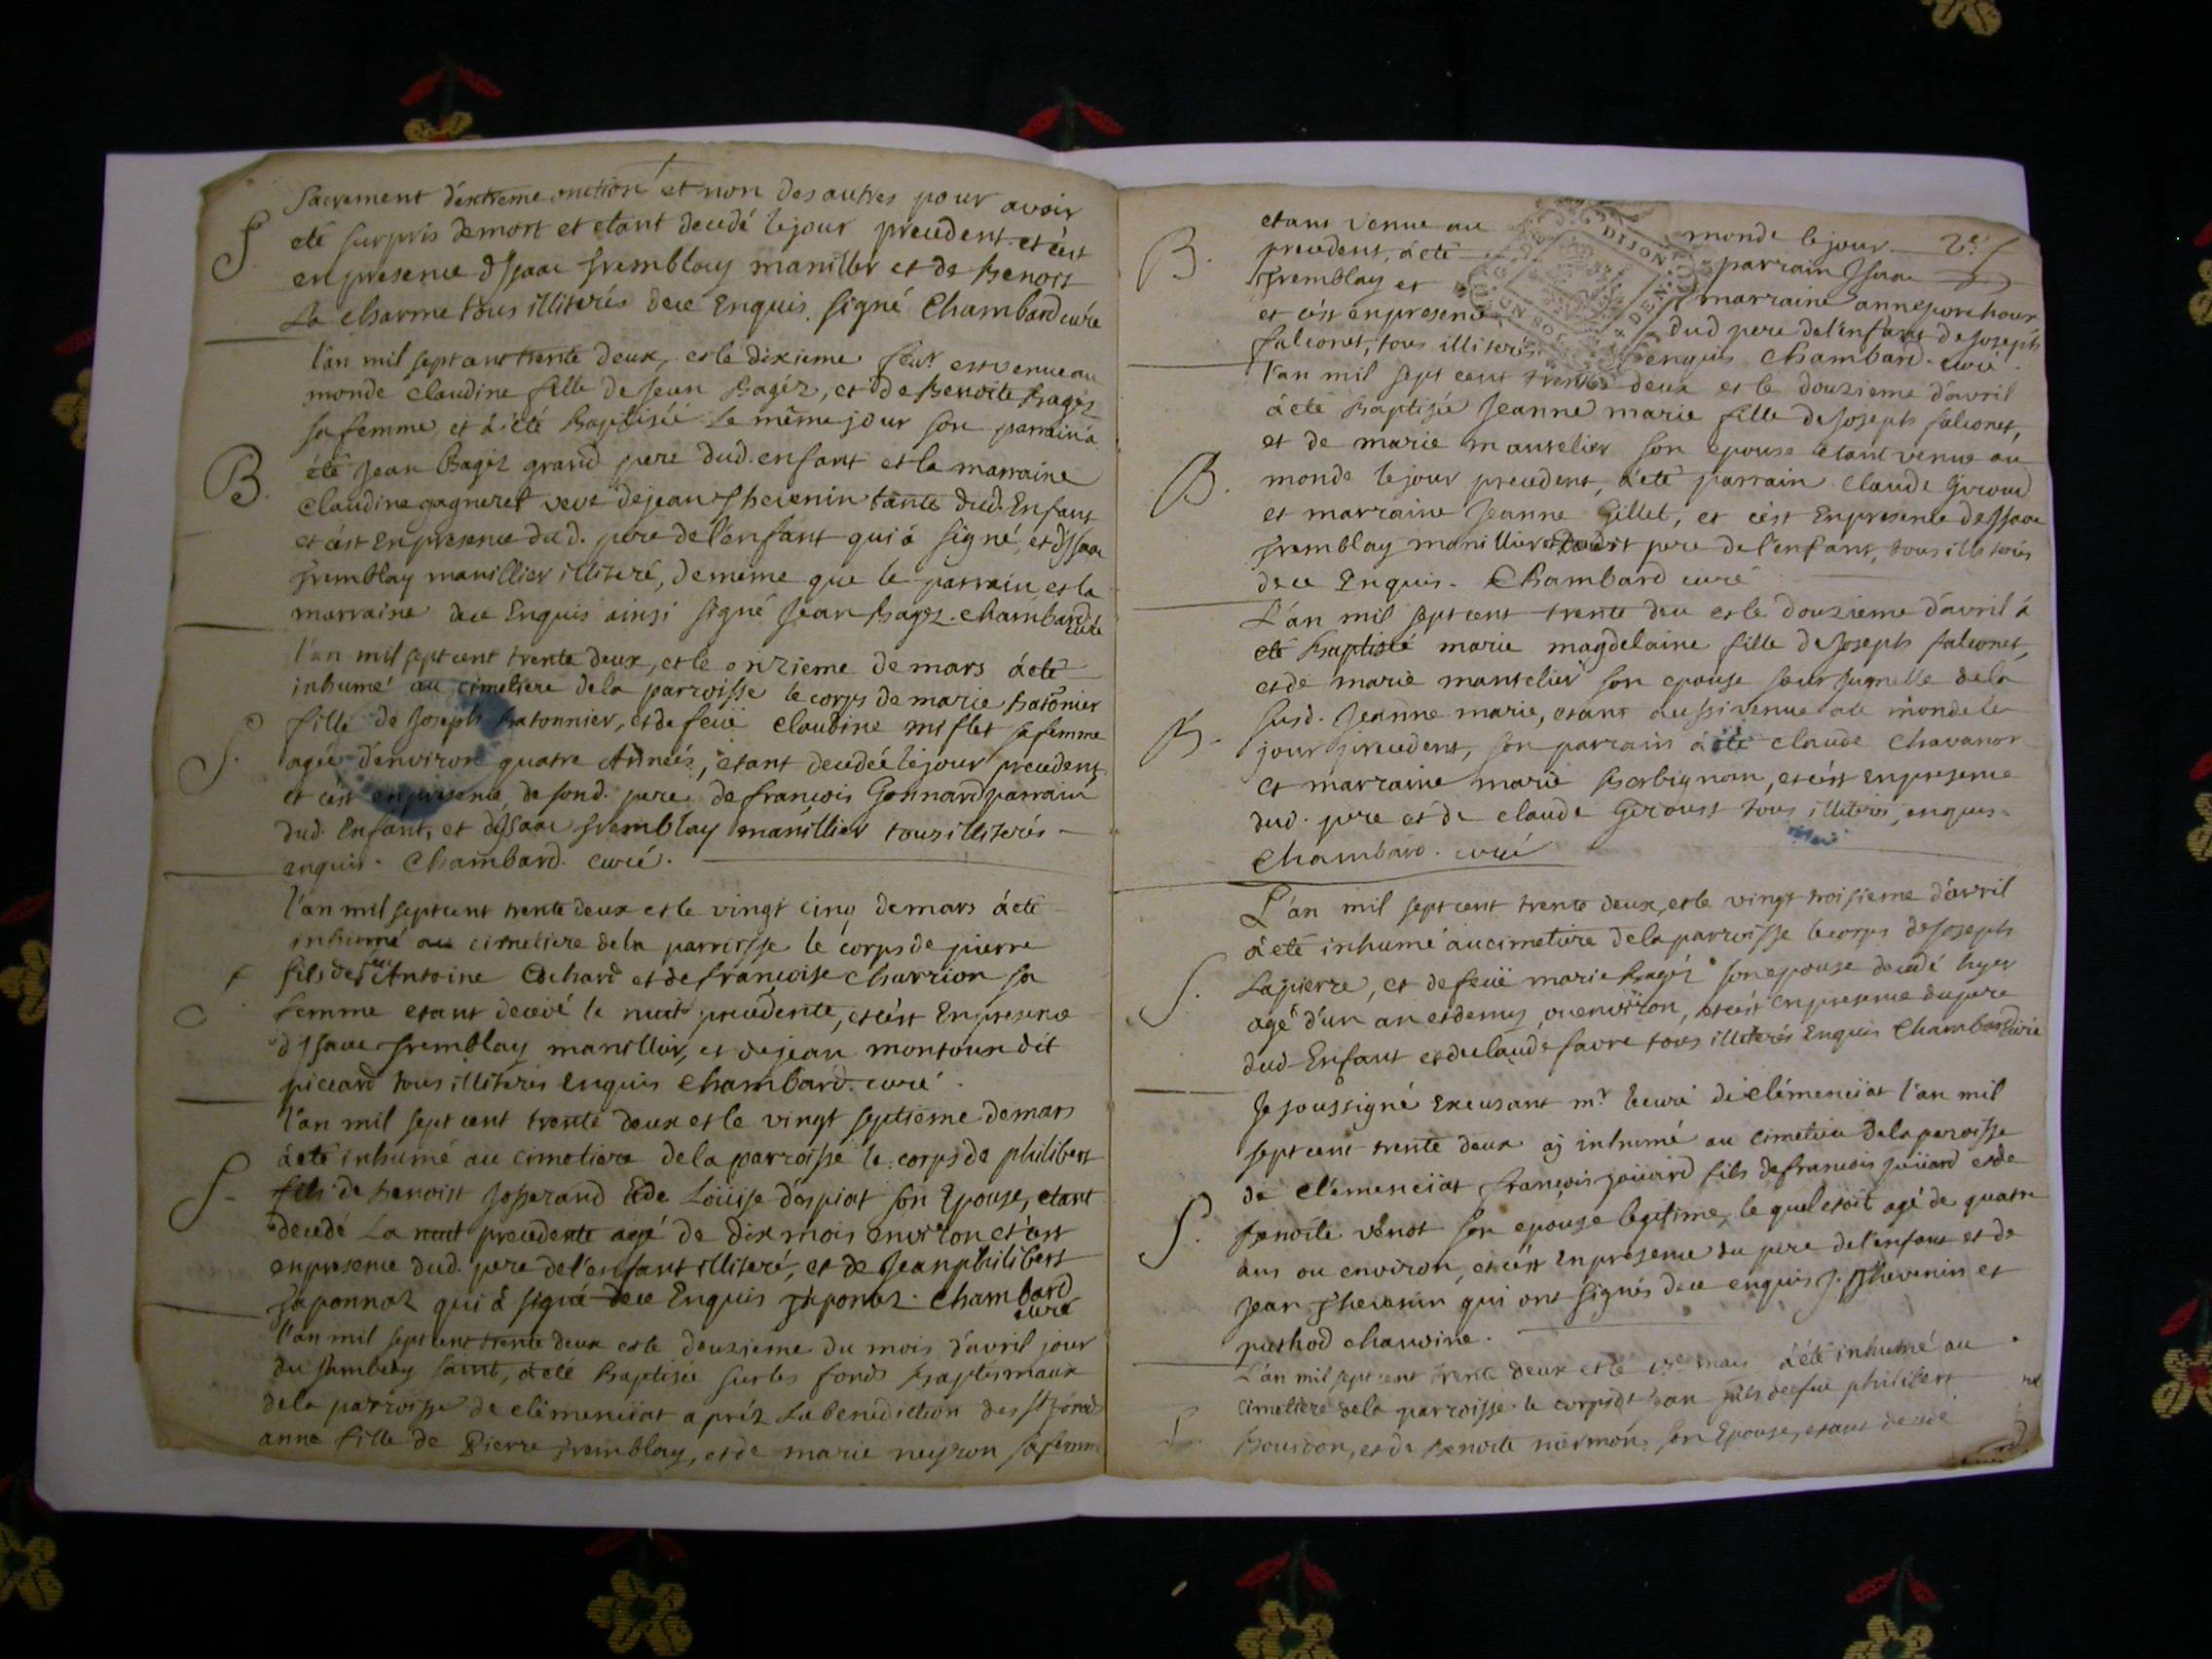 Sacrement d'extreme onction et non des autres pour avoir
S. eté surpris de mort et etant decedé le jour precedent et c'est
en presence d'Isaac Tremblay manillier et de Benoist
La Charme tous illiterés de ce Enquis. signé Chambard curé
l'an mil sept cent trente deux, et le dixieme est venue au
monde Claudine fille de Jean Bagéz, et de Benoite Bagéz
sa femme et à été Baptisée Le même jour son parrain à
B. été Jean Bagéz grand pere dud. enfant et la marraine
Claudine gagneret veve de jean Thevenin tante dud. Enfant
et c'est En presence dud. pere de l'enfant qui à signé, et d'Isaac
Tremblay manillier illiteré, de meme que le parrain, et la
marraine de ce Enquis ainsi signé Jean Bagéz. Chambard
curé
l'an mil sept cent trente deux, et le onzieme de mars à eté
inhumé au cimetiere de la parroisse le corps de marie batonier
S. fille de Joseph batonnier, et de feüe Claudine miflet sa femme
agée d'environ quatre Années, etant decedée le jour precedent
et c'est en presence de sond. pere de françois Gonnard parrain
dud. Enfant, et d'Isaac Tremblay manillier tous illiterés
enquis. Chambard. curé.
l'an mil sept cent trente deux et le vingt cinq de mars à eté
inhumé au cimetiere de la parroisse le corps de pierre
S. fils de feu Antoine Cochard et de françoise Charrion sa
femme etant decedé la nuit precedente, et c'est En presence
d'Isaac Tremblay manillier, et de jean montoux dit
piccard tous illiterés Enquis Chambard. curé.
l'an mil sept cent trente deux et le vingt septieme de mars
à eté inhumé au cimetiere de la parroisse le corps de philibert
S. fils de benoist Josserand Et de Loüise d'espiat son Epouse, etant
decedé La nuit precedente agé de dix mois environ et c'est
en presence dud. pere de l'enfant illiteré, et de Jean philibert
Japonnoz qui à signé de ce Enquis Japonoz. Chambard
curé
l'an mil sept cent trente deux et le douzieme du mois d'avril jour
du samedy saint, à eté Baptisée sur les fonds baptismaux
de la parroisse de clémenciat apréz La benediction des sts fonds
anne fille de Pierre Tremblay, et de marie neyron sa femme
etant venue au monde le jour 2e f
B. precedent, à eté parrain Isaac
Tremblay et marraine anne
et c'est en presence dud pere de l'enfant de Joseph
falconet, tous illiterés enquis Chambard. curé.
l'an mil sept cent trente deux et le douzieme d'avril
à eté Baptisée Jeanne marie fille de Joseph falconet,
et de marie mantelier son epouse etant venue au
B. monde le jour precedent, à eté parrain Claude Giroud
et marraine Jeanne Gillet, et c'est En presence d'Isaac
Tremblay manillier pere de l'enfant, tous illiterés
de ce Enquis. Chambard curé
L'an mil sept cent trente deu et le douzieme d'avril à
eté Baptisté marie magdelaine fille de Joseph falconet,
et de marie mantelier son epouse sœur jumelle de la
B. susd. Jeanne marie, etant aussi venue au monde le
jour precedent, son parrain à eté Claude Chavanor
et marraine marie Berbignon, et c'est en presence
dud. pere et de claude Geroust tous illiterés, enquis.
Chambard. curé
L'an mil sept cent trente deux, et le vingt troisieme d'avril
à eté inhumé au cimetiere de la parroisse le corps de Joseph
S. Lapierre, et de feüe marie Bagéz son epouse decedé hyer
agé d'un an et demy ou environ, et c'est En presence du pere
dud Enfant et de claude favre tous illiterés Enquis Chambard curé
Je soussigné Excusant mr. le curé de clémenciat l'an mil
sept cent trente deux aj inhumé au cimetiere de la paroisse
de clémenciat françois joüard fils de francois joüard et de
S. benoite venot son epouse legitime, le quel etoit agé de quatre
ans ou environ, et c'est En presence du pere de l'enfant et de
Jean Thevenin qui ont signés de ce enquis J. Thevenin et
puthod chanoine.
L'an mil sept cent trente deux et le mai à eté inhumé au
cimetiere de la parroisse le corps de Jean fils de feu philibert
S. Bourdon, et de Benoite mermon son Epouse, etant decedé